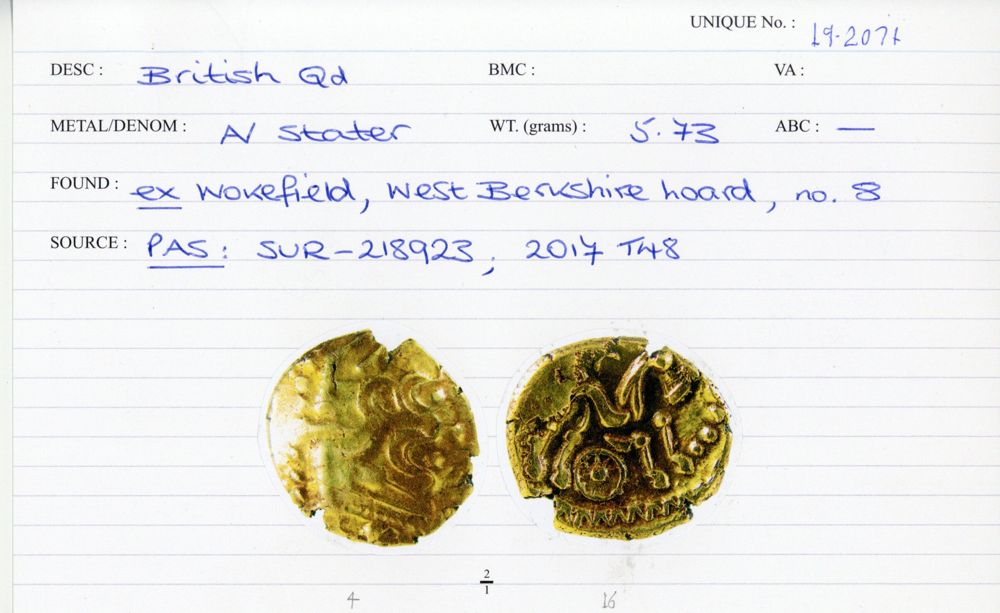 UNIQUE No. : 19-2071
DESC : British Qd BMC : VA :
METAL/DENOM : A/ stater WT. (grams) : 5.73 ABC : —
FOUND : ex Wokefield, West Berkshire hoard, no. 8
SOURCE : PAS: SUR-218923; 2017 T48
2
1
4 16